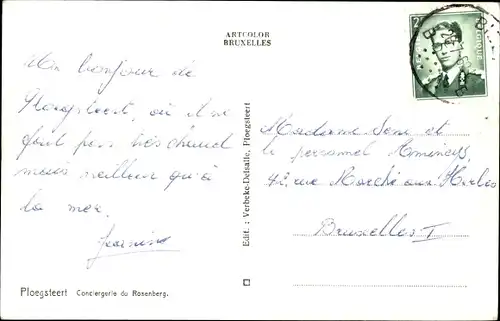 ARTCOLOR
BRUXELLES
Un bonjour de
Ploegsteert, où il ne
fait pas très chaud
mais meilleur qu'à
la mer.
Jeanine
Edit. : Verbeke-Delsalle, Ploegsteert
Madame Sem et
le personnel
42, rue Marché aux Herbes
Bruxelles I
Ploegsteert Conciergerie du Rosenberg.